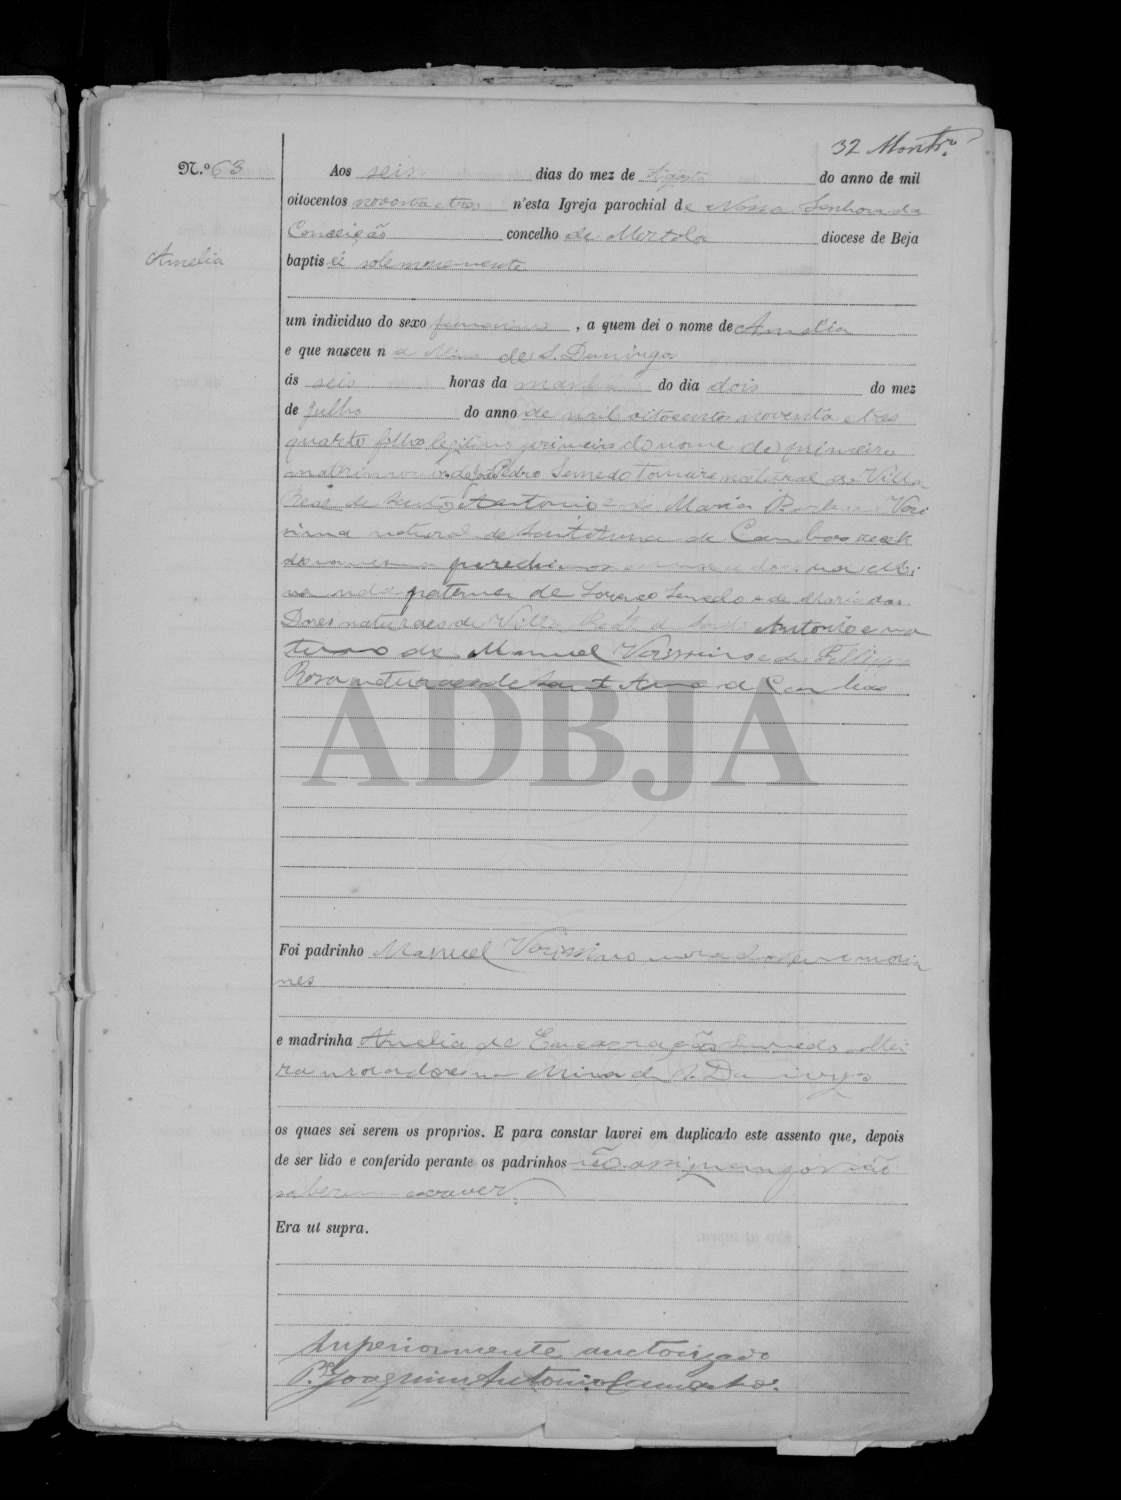 32 Montr.º
N.º 63 Aos seis dias do mez de Agosto do anno de mil
oitocentos noventa e tres n'esta Igreja parochial de Nossa Senhora da
Conceição concelho de Mertola diocese de Beja
Amelia
baptisei solemnemente
um individuo do sexo femenino, a quem dei o nome de Amelia
e que nasceu na Mina de S. Domingos
ás seis horas da manhã do dia dois do mez
de Julho do anno de mil oitocentos noventa e tres
quarto filho legitimo primeiro do nome do primeiro
matrimonio de Pedro Semedo natural de Villa
Real de Santo Antonio e de Maria Veri
natural de de Cambas
parochianos na Mi
na paterna de Semedo e de Maria das
Dores naturaes de Villa Real de Santo Antonio e ma
terno de Manuel Verissimo e de
Rosa naturaes de Sant Anna de Cambas
ADBJA
Foi padrinho Manuel Verissimo morador em
nes
e madrinha Amelia da Encarnação Semedo
moradores na Mina de S. Domingos
os quaes sei serem os proprios. E para constar lavrei em duplicado este assento que, depois
de ser lido e conferido perante os padrinhos não assignam por não
saberem escrever.
Era ut supra.
Superiormente auctorizado
P.e Joaquim Antonio